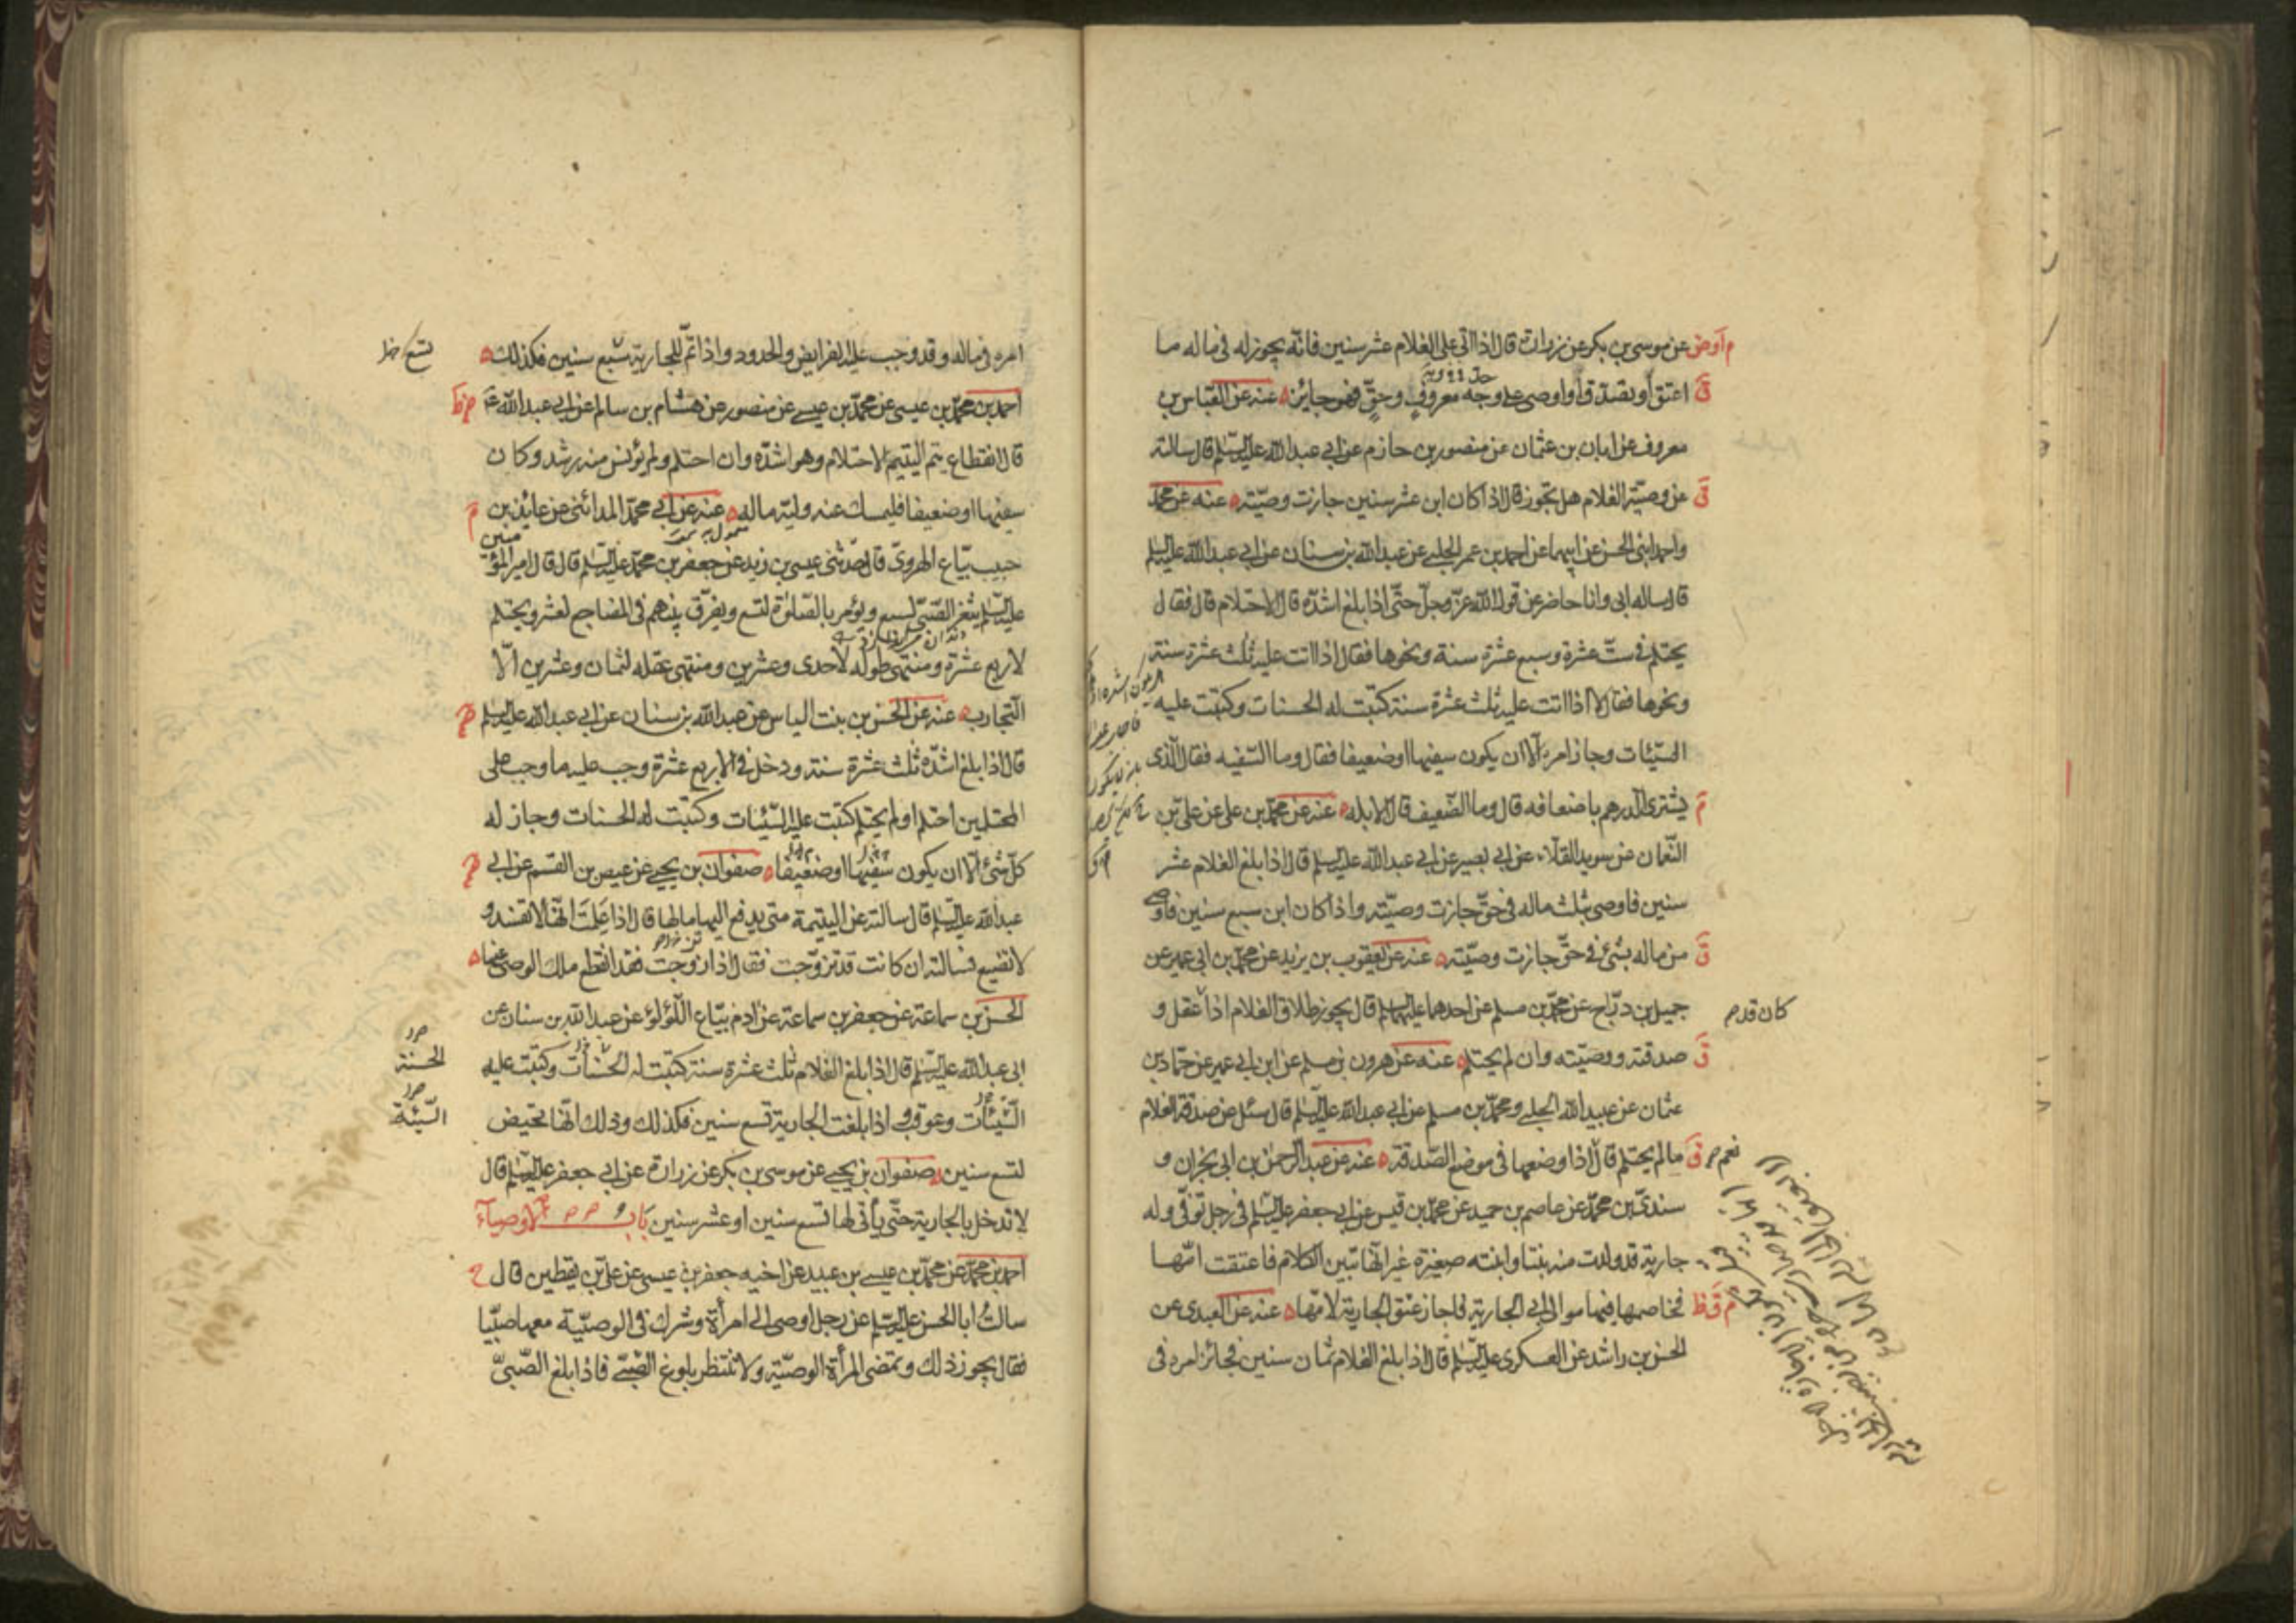 عن موسى بن بكر عن زرارة قال اذا اتى على الغلام عشر سنين فانه يجوز له فى ماله ما
اعتق او تصدق او اوصى على وجه معروف وحق فهو جايز عنه عن العباس بن
معروف عن ابان بن عثمان عن منصور بن حازم عن ابى عبد الله عليه السلم قال سالته
عن وصية الغلام هل تجوز قال اذا كان ابن عشر سنين جازت وصيته عنه عن محمد
واحمد ابنى الحسن عن ابيهما عن احمد بن عمر الحلبى عن عبد الله بن سنان عن ابى عبد الله عليه السلم
قال ساله ابى وانا حاضر عن قول الله عز وجل حتى اذا بلغ اشده قال الاحتلام قال فقال
يحتلم فى ست عشرة وسبع عشرة سنة ونحوها فقال اذا اتت عليه ثلث عشرة سنة
ونحوها فقال لا اذا اتت عليه ثلث عشرة سنة كتبت له الحسنات وكتبت عليه
السيئات وجاز امره الا ان يكون سفيها او ضعيفا فقال وما السفيه فقال الذى
يشترى الدرهم باضعافه قال وما الضعيف قال الابله عنه عن محمد بن على عن على بن
النعمان عن سويد القلاء عن ابى بصير عن ابى عبد الله عليه السلم قال اذا بلغ الغلام عشر
سنين فاوصى بثلث ماله فى حق جازت وصيته واذا كان ابن سبع سنين فاوصى
من ماله بشئ فى حق جازت وصيته عنه عن يعقوب بن يزيد عن محمد بن ابى عمير عن
جميل بن دراج عن محمد بن مسلم عن احدهما عليهما السلم قال يجوز طلاق الغلام اذا عقل و
كان قد
صدقته ووصيته وان لم يحتلم عنه عن هرون بن مسلم عن ابن ابى عمير عن حماد بن
عثمان عن عبيد الله الحلبى ومحمد بن مسلم عن ابى عبد الله عليه السلم قال سئل عن صدقة الغلام
ما لم يحتلم قال اذا وضعها فى موضع الصدقة عنه عن عبد الرحمن بن ابى نجران و
نعم
سندى بن محمد عن عاصم بن حميد عن محمد بن قيس عن ابى جعفر عليه السلم فى رجل توفى وله
جارية قد ولدت منه بنتا وابنته صغيرة غير انها تبين الكلام فاعتقت امها
فخاصمها فيها موالى ابى الجارية فاجاز عتق الجارية لامها عنه عن العبدى عن
الحسن بن راشد عن العسكرى عليه السلم قال اذا بلغ الغلام ثمان سنين فجائز امره فى
امره فى ماله وقد وجب عليه الفرايض والحدود واذا تم للجارية سبع سنين فكذلك
لتسع
احمد بن محمد بن عيسى عن محمد بن عيسى عن منصور عن هشام بن سالم عن ابى عبد الله ع
قال انقطاع يتم اليتيم الاحتلام وهو اشده وان احتلم ولم يؤنس منه رشد وكان
سفيها او ضعيفا فليمسك عنه وليه ماله عنه عن ابى محمد المدائنى عن عائذ بن
حبيب بياع الهروى قال حدثنى عيسى بن زيد عن جعفر بن محمد عليه السلم قال قال امير المؤمنين
عليه السلم يثغر الصبى لسبع ويؤمر بالصلوة لتسع ويفرق بينهم فى المضاجع لعشر ويحتلم
لاربع عشرة ومنتهى طوله لاحدى وعشرين ومنتهى عقله لثمان وعشرين الا
التجارب عنه عن الحسن بن بنت الياس عن عبد الله بن سنان عن ابى عبد الله عليه السلم
قال اذا بلغ اشده ثلث عشرة سنة ودخل فى الاربع عشرة وجب عليه ما وجب على
المحتلمين احتلم او لم يحتلم كتبت عليه السيئات وكتبت له الحسنات وجاز له
كل شئ الا ان يكون سفيها او ضعيفا صفوان بن يحيى عن عيص بن القسم عن ابى
عبد الله عليه السلم قال سالته عن اليتيمة متى يدفع اليها مالها قال اذا علمت انها لا تفسد و
لا تضيع فسالته ان كانت قد تزوجت فقال اذا تزوجت فقد انقطع ملك الوصى عنها
الحسن بن سماعة عن جعفر بن سماعة عن ادم بياع اللؤلؤ عن عبد الله بن سنان عن
ابى عبد الله عليه السلم قال اذا بلغ الغلام ثلث عشرة سنة كتبت له الحسنات وكتبت عليه
الحسنة
السيئات وعوقب واذا بلغت الجارية تسع سنين فكذلك وذلك انها تحيض
السيئة
لتسع سنين صفوان بن يحيى عن موسى بن بكر عن زرارة عن ابى جعفر عليه السلم قال
لا تدخل بالجارية حتى يأتى لها تسع سنين او عشر سنين باب الاوصياء
احمد بن محمد عن محمد بن عيسى بن عبيد عن اخيه جعفر بن عيسى عن على بن يقطين قال
سالت ابا الحسن عليه السلم عن رجل اوصى الى امرأة وشرك فى الوصية معها صبيا
فقال يجوز ذلك وتمضى المرأة الوصية ولا تنتظر بلوغ الصبى فاذا بلغ الصبى